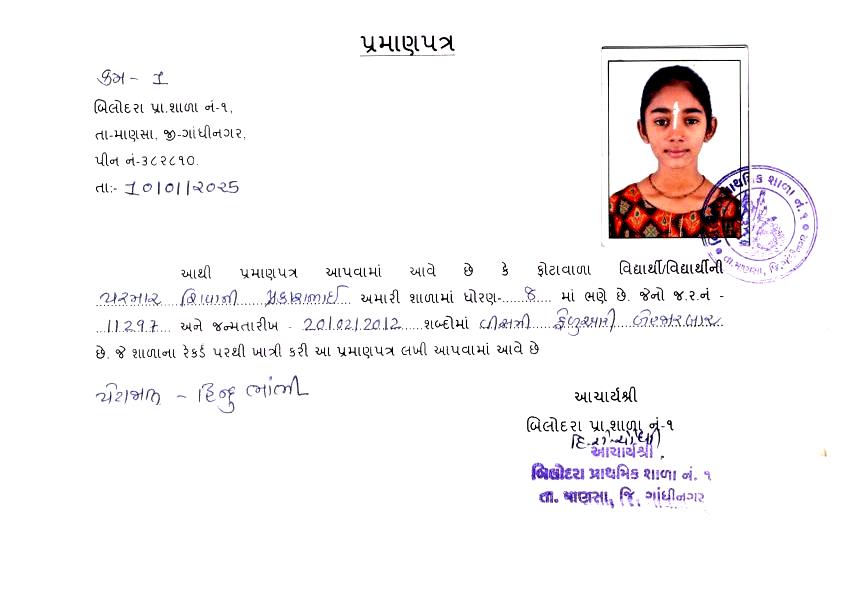 પ્રમાણપત્ર
ક્રમ - 1
બિલોદરા પ્રા.શાળા નં-૧,
તા-માણસા, જી-ગાંધીનગર,
પીન નં-૩૮૨૮૧૦.
તા:- 10/01/2025
આથી પ્રમાણપત્ર આપવામાં આવે છે કે ફોટાવાળા વિદ્યાર્થી/વિદ્યાર્થીની
પરમાર શિવાની પ્રકાશભાઈ અમારી શાળામાં ધોરણ- 8 માં ભણે છે. જેનો જ.ર.નં -
11297 અને જન્મતારીખ - 20/02/2012 શબ્દોમાં વીસમી ફેબ્રુઆરી બેહજારબાર
છે. જે શાળાના રેકર્ડ પરથી ખાત્રી કરી આ પ્રમાણપત્ર લખી આપવામાં આવે છે
પેટાજાતિ - હિન્દુ ભાંભી
આચાર્યશ્રી
બિલોદરા પ્રા.શાળા નં-૧
આચાર્યશ્રી
બિલોદરા પ્રાથમિક શાળા નં. ૧
તા. માણસા, જિ. ગાંધીનગર
પ્રાથમિક શાળા નં. ૧
તા. માણસા, જિ.